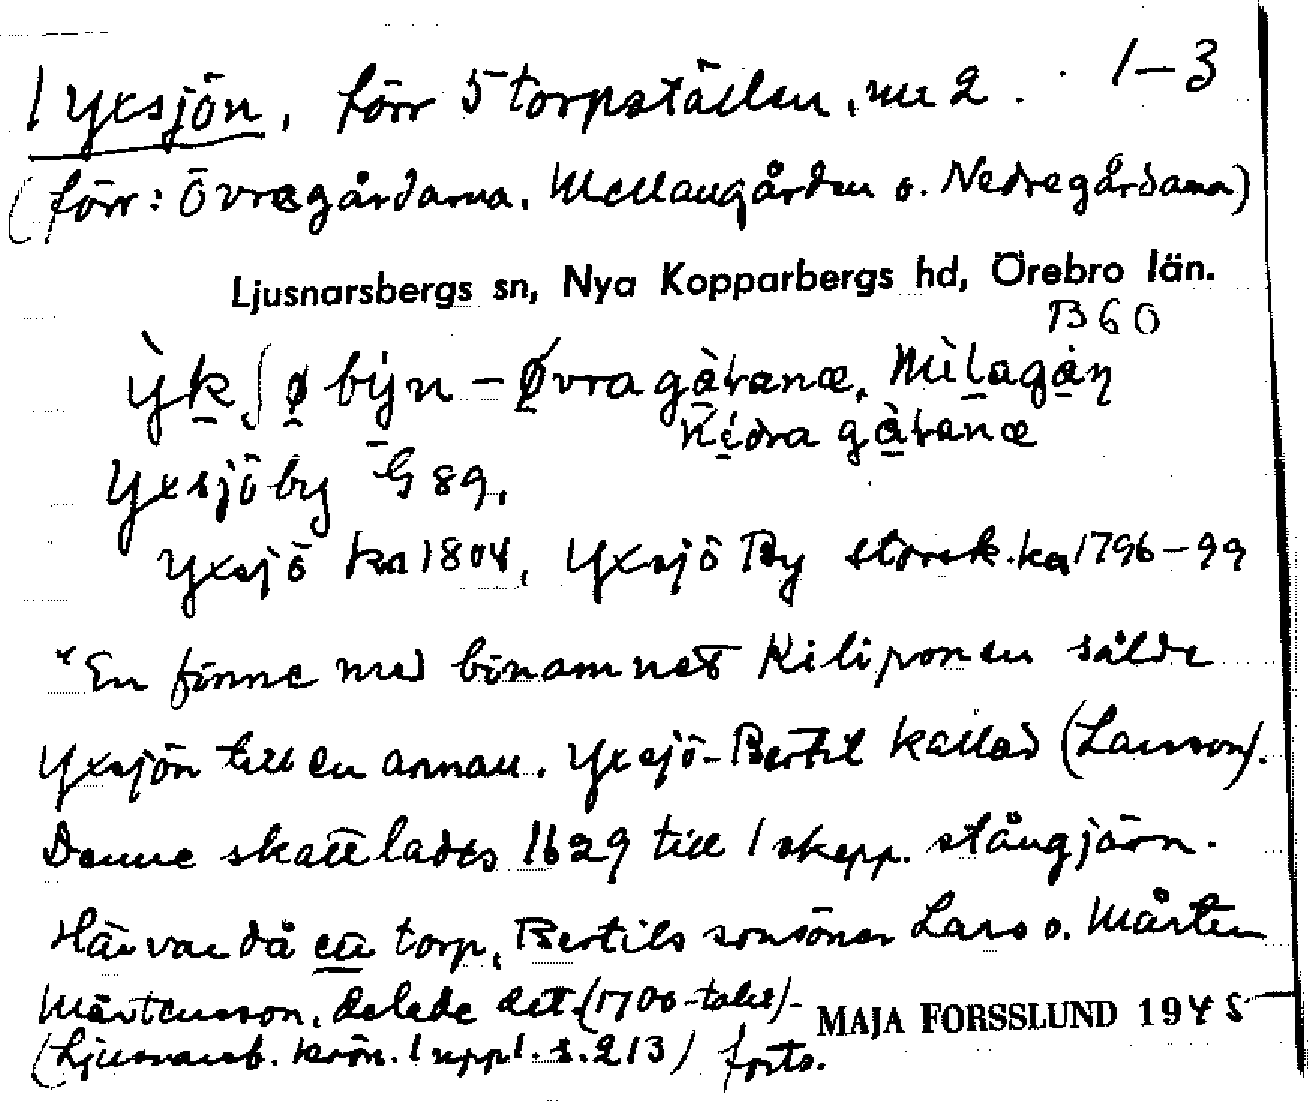 1 Yxsjön, förr 5 torpställen, nu 2. 1–3
(förr: Övregårdarna, Mellangården o. Nedregårdarna)
Ljusnarsbergs sn, Nya Kopparbergs hd, Örebro län.
B60
ỳkʃø býn – Øvra gàranæ, Mìlagàn
Nédra gàranæ
Yxsjöby G 89,
Yxsjö ka 1804, Yxsjö By storsk.ka 1796–99
"En finne med binamnet Kiliponen sålde
Yxsjön till en annan, Yxsjö-Bertil kallad (Larsson).
Denne skattlades 1629 till 1 skepp. stångjärn.
Här var då ett torp, Bertils sonsöner Lars o. Mårten
Mårtensson, delade det (1700-talet)-
(Ljusnarsb. krön. 1 uppl. s. 213) forts.
MAJA FORSSLUND 1945